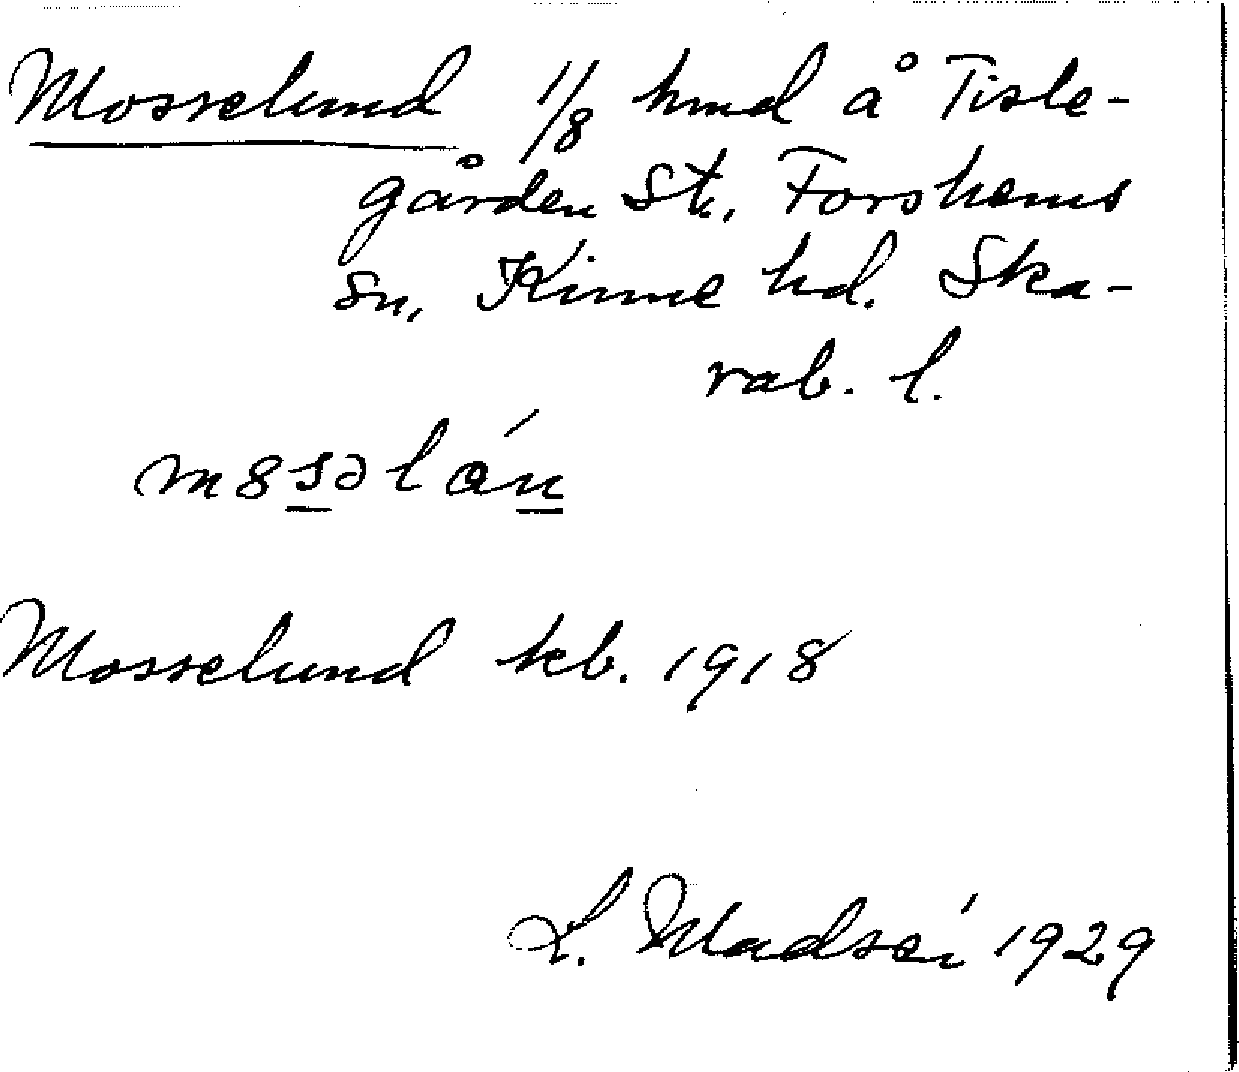 Mosselund 1/8 hmd å Tisle-
gården St., Forshems
sn, Kinne hd. Ska-
rab. l.
m8səlán
Mosselund kb. 1918
L. 1929